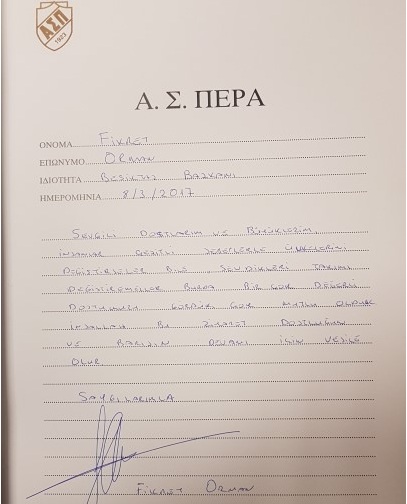 ΑΣΠ
1923
Α. Σ. ΠΕΡΑ
ΟΝΟΜΑ FİKRET
ΕΠΩΝΥΜΟ ORMAN
ΙΔΙΟΤΗΤΑ BEŞİKTAŞ BAŞKANI
ΗΜΕΡΟΜΗΝΙΑ 8/3/2017
SEVGİLİ DOSTLARIM VE BÜYÜKLERİM,
İNSANLAR ÇEŞİTLİ SEBEPLERLE ÜLKELERİNİ
DEĞİŞTİRSELER BİLE, SEVDİKLERİ TAKIMI
DEĞİŞTİREMEZLER BURDA BİR ÇOK DEĞERLİ
DOSTUMUZU GÖRÜNCE ÇOK MUTLU OLDUK
İNŞALLAH BU ZİYARET DOSTLUĞUN
VE BARIŞIN DEVAMI İÇİN VESİLE
OLUR
SAYGILARIMLA
FİKRET ORMAN